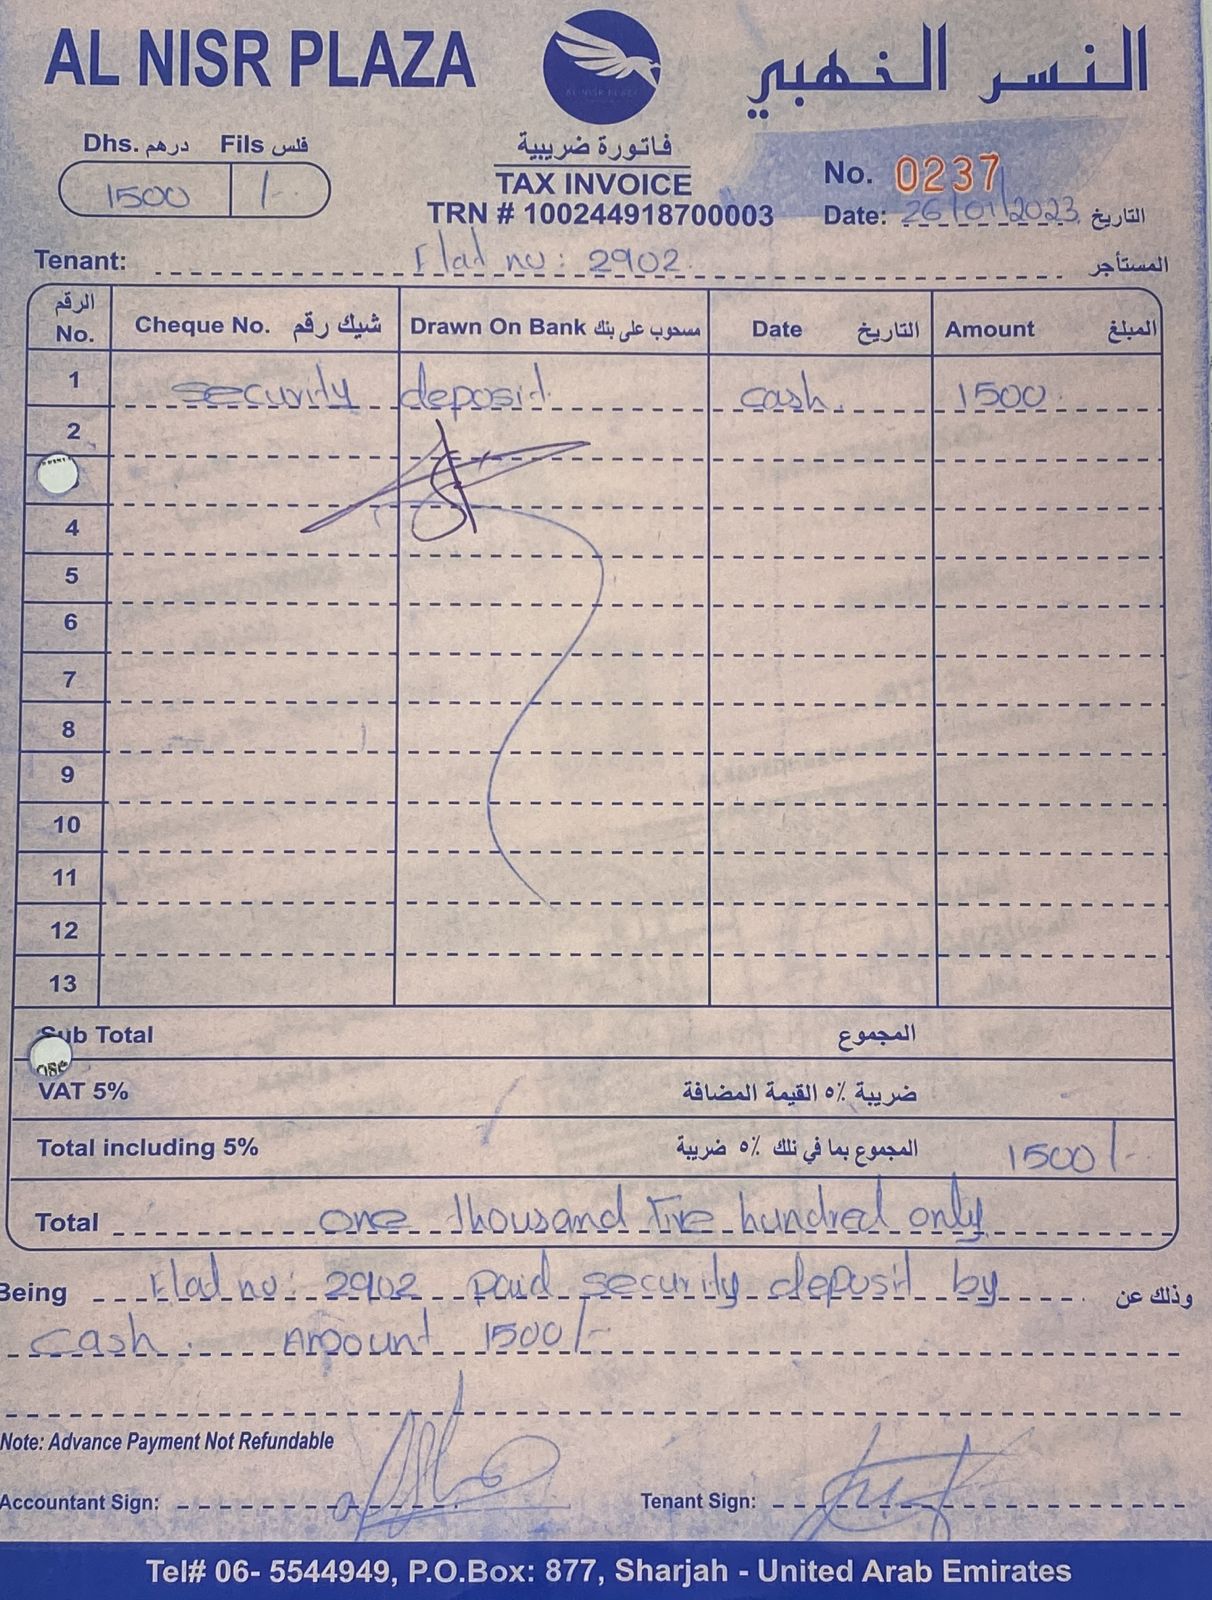 AL NISR PLAZA
AL NISR PLAZA
النسر الخهبي
Dhs. درهم Fils فلس
1500 /-
فاتورة ضريبية
TAX INVOICE
TRN # 100244918700003
No. 0237
Date: 26/01/2023 التاريخ
Tenant: Flad no: 2902 المستأجر
الرقم No. Cheque No. شيك رقم Drawn On Bank مسحوب على بنك Date التاريخ Amount المبلغ
1 security deposit cash. 1500
2
4
5
6
7
8
9
10
11
12
13
Sub Total المجموع
VAT 5% ضريبة ٥٪ القيمة المضافة
Total including 5% المجموع بما في نلك ٥٪ ضريبة 1500/-
Total one thousand five hundred only
Being Flad no: 2902 paid security deposit by وذلك عن
cash. Amount 1500/-
Note: Advance Payment Not Refundable
Accountant Sign: Tenant Sign:
Tel# 06- 5544949, P.O.Box: 877, Sharjah - United Arab Emirates